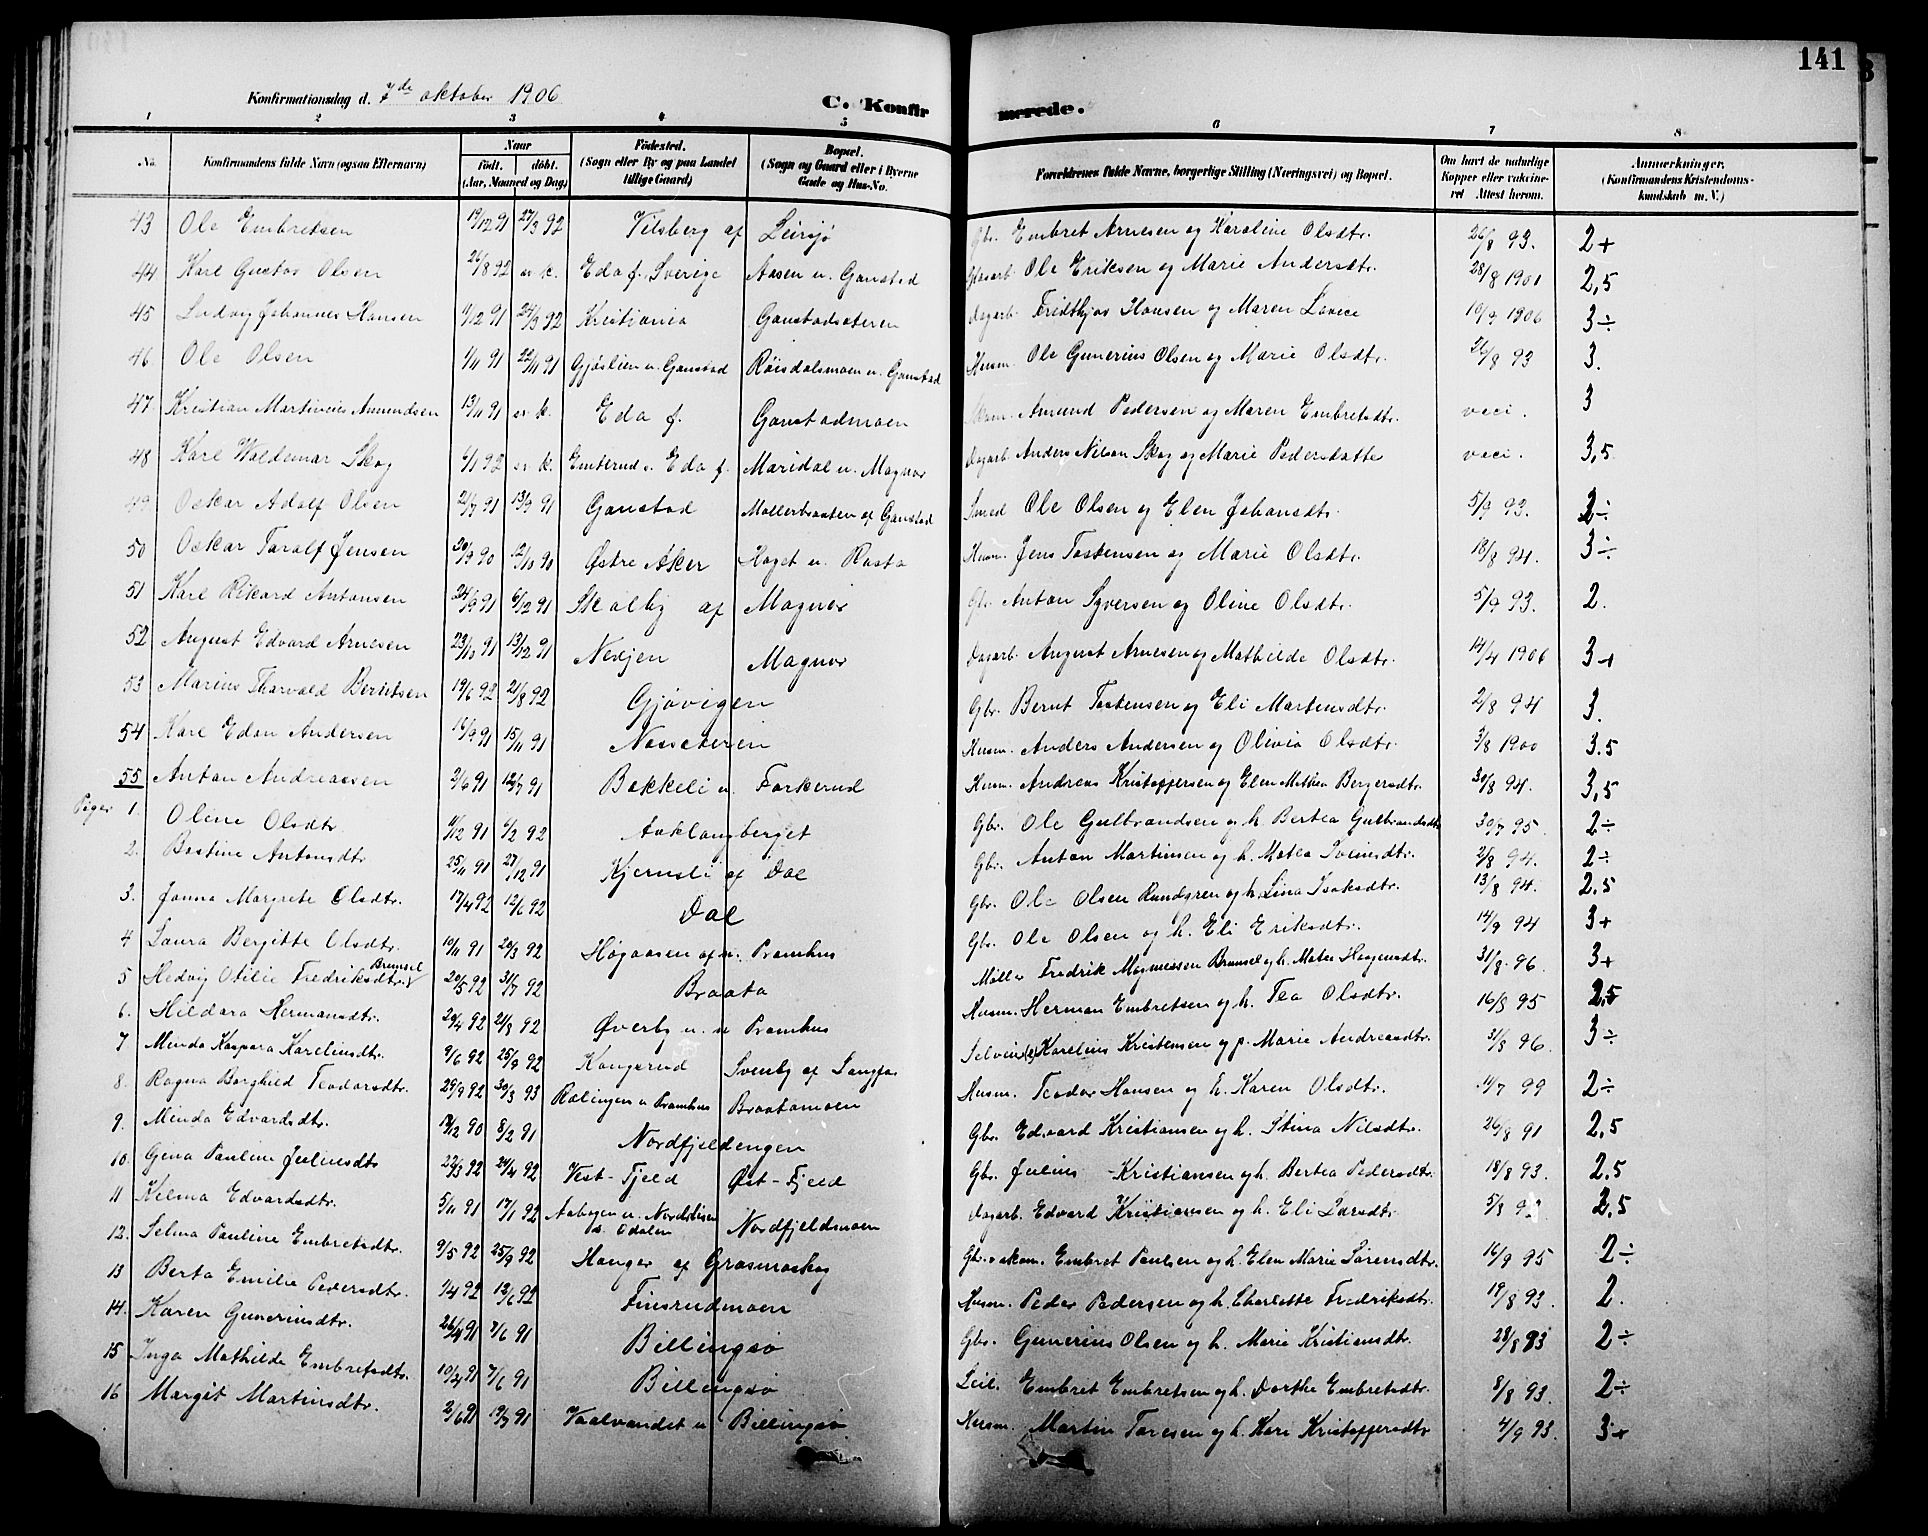 141
Konfirmationsdag d. 7de oktober 1906 C. Konfirmerede.
1 2 3 4 5 6 7 8
No. Konfirmandens fulde Navn (ogsaa Efternavn) Naar født. døbt. (Aar, Maaned og Dag) Fødested. (Sogn eller By og paa Landet tillige Gaard) Bopæl. (Sogn og Gaard eller i Byerne Gade og Hus-No. Forældrenes fulde Navne, borgerlige Stilling (Næringsvei) og Bopæl. Om havt de naturlige Kopper eller vakcineret Attest herom. Anmærkninger. (Konfirmandens Kristendomskundskab m. V.)
43 Ole Embretsen 19/12 91 27/3 92 Vilsberg af Leirsjø Gbr. Embret Arnesen og Karoline Olsdtr. 26/8 93. 2+
44 Karl Gustav Olsen 26/8 92 sv. k. Eda f. Sverige Aasen u. Ganstad Ole Eriksen og Marie Andersdtr. 28/8 1901 2,5
45 Ludvig Johannes Hansen 9/12 91 24/3 92 Kristiania Ganstadsæteren Dagarb. Fridthjov Hansen og Maren Lovise 10/9 1906 3÷
46 Ole Olsen 1/11 91 22/11 91 Gjøslien u. Ganstad Røisdalsmoen u. Ganstad Husm. Ole Gunerius Olsen og Marie Olsdtr. 26/8 93 3.
47 Kristian Martinius Amundsen 13/11 91 sv. k. Eda f. Ganstadmoen Husm. Amund Pedersen og Maren Embretsdtr. vacc. 3
48 Karl Waldemar Skog 6/1 92 sv. k. Emterud i Eda f. Maridal u. Magnor Dagarb. Anders Nilson Skog og Marie Pedersdatter vacc. 3,5
49 Oskar Adolf Olsen 21/7 91 13/9 91 Ganstad Møllerbraaten af Ganstad Smed Ole Olsen og Elen Johansdtr. 5/9 93. 2÷
50 Oskar Taralf Jensen 20/9 90 12/10 90 Østre Aker Haget u. Rasta Husm. Jens Tostensen og Marie Olsdtr. 18/8 94. 3÷
51 Karl Rikard Antonsen 24/9 91 6/12 91 Skalby af Magnor Gbr. Anton Syversen og Oline Olsdtr. 5/9 93. 2.
52 August Edvard Arnesen 23/10 91 13/12 91 Nesjen Magnor Dagarb. August Arnesen og Mathilde Olsdtr. 14/4 1906 3+
53 Marius Thorvald Berntsen 19/6 92 21/8 92 Gjøvigen Gbr. Bernt Tostensen og Eli Martinsdtr. 2/8 94 3.
54 Karl Edon Andersen 16/9 91 15/11 91 Næsseterien Husm. Anders Andersen og Olivia Olsdtr. 3/8 1900 3.5
55 Anton Andreassen 2/6 91 12/7 91 Bekkeli u. Torkerud Husm. Andreas Kristoffersen og Elen Mathea Bergersdtr. 30/8 94. 3,5
Piger 1. Oline Olsdtr 11/12 91 6/2 92 Aaklangberget Gbr. Ole Gulbrandsen og h. Bertea Gulbrandsdtr 30/7 95. 2÷
2. Bastine Antonsdtr 25/11 91 27/12 91 Kjernsli af Dal Gbr. Anton Martinsen og h. Matea Sveinsdtr. 2/8 94. 2÷
3. Janna Margrete Olsdtr. 17/4 92 12/6 92 Dal Gbr. Ole Olsen Rundgren og h. Lina Isaksdtr. 13/8 94. 2.5
4 Laura Bergitte Olsdtr. 10/11 91 20/3 92 Høgaasen af u. Pramhus Gbr. Ole Olsen og h. Eli Eriksdtr. 14/9 94 3+
5 Hedvig Otilie Fredriksdtr. Brunsel 20/5 92 31/7 92 Braata Møller Fredrik Magnussen Brunsel og h. Matea Haagensdtr. 31/8 96. 3+
6. Hildara Hermansdtr. 29/4 92 21/8 92 Øverby u. Pramhus Husm. Herman Embretsen og h. Tea Olsdtr. 16/8 95 2,5
7 Minda Kaspara Karelinsdtr. 9/6 92 25/9 92 Kongsrud Svenby af Langfos Karelius Kristensen og p. Marie Andreasdtr. 31/8 96. 3÷
8. Ragna Borghild Teodorsdtr. 29/9 92 30/3 93 Rælingen u. Pramhus Braatamoen Husm. Teodor Hansen og h. Karen Olsdtr. 14/7 99 2÷
9. Minda Edvardsdtr. 19/12 90 8/2 91 Nordfjeldengen Gbr. Edvard Kristiansen og h. Stina Nilsdtr. 26/8 91 2,5
10. Gina Pauline Juliusdtr 22/3 92 24/4 92 Vest-Fjeld Øst-Fjeld Gbr. Julius Kristiansen og h. Bertea Pedersdtr. 18/8 93. 2,5
11 Hilma Edvardsdtr. 5/11 91 17/1 92 Aabogen u. Nordstuen Nordfjeldmoen Dagarb. Edvard Kristiansen og h. Eli Larsdtr. 2,5
12. Selma Pauline Embretsdtr. 9/5 92 25/9 92 Hanger af Grasmoskog Embret Paulsen og h. Elen Marie Sørensdtr. 16/9 95 2÷
13 Berta Emilie Pedersdtr. 1/4 92 12/6 92 Finsrudmoen Husm. Peder Pedersen og h. Charlotte Fredriksdtr. 19/8 93. 2.
14. Karen Gunerinsdtr. 26/4 91 7/6 91 Billingsø Gbr. Gunerius Olsen og h. Marie Kristiansdtr. 28/8 93 2÷
15 Inga Mathilde Embretsdtr. 19/4 91 7/6 91 Billingsø Leil. Embret Embretsen og h. Dorthe Embretsdtr. 8/8 93. 2÷
16 Margit Martinsdtr. 2/6 91 19/7 91 Vaalvandet u Billingsø Husm. Martin Taresen og h. Kari Kristoffersdtr 4/9 93. 3+